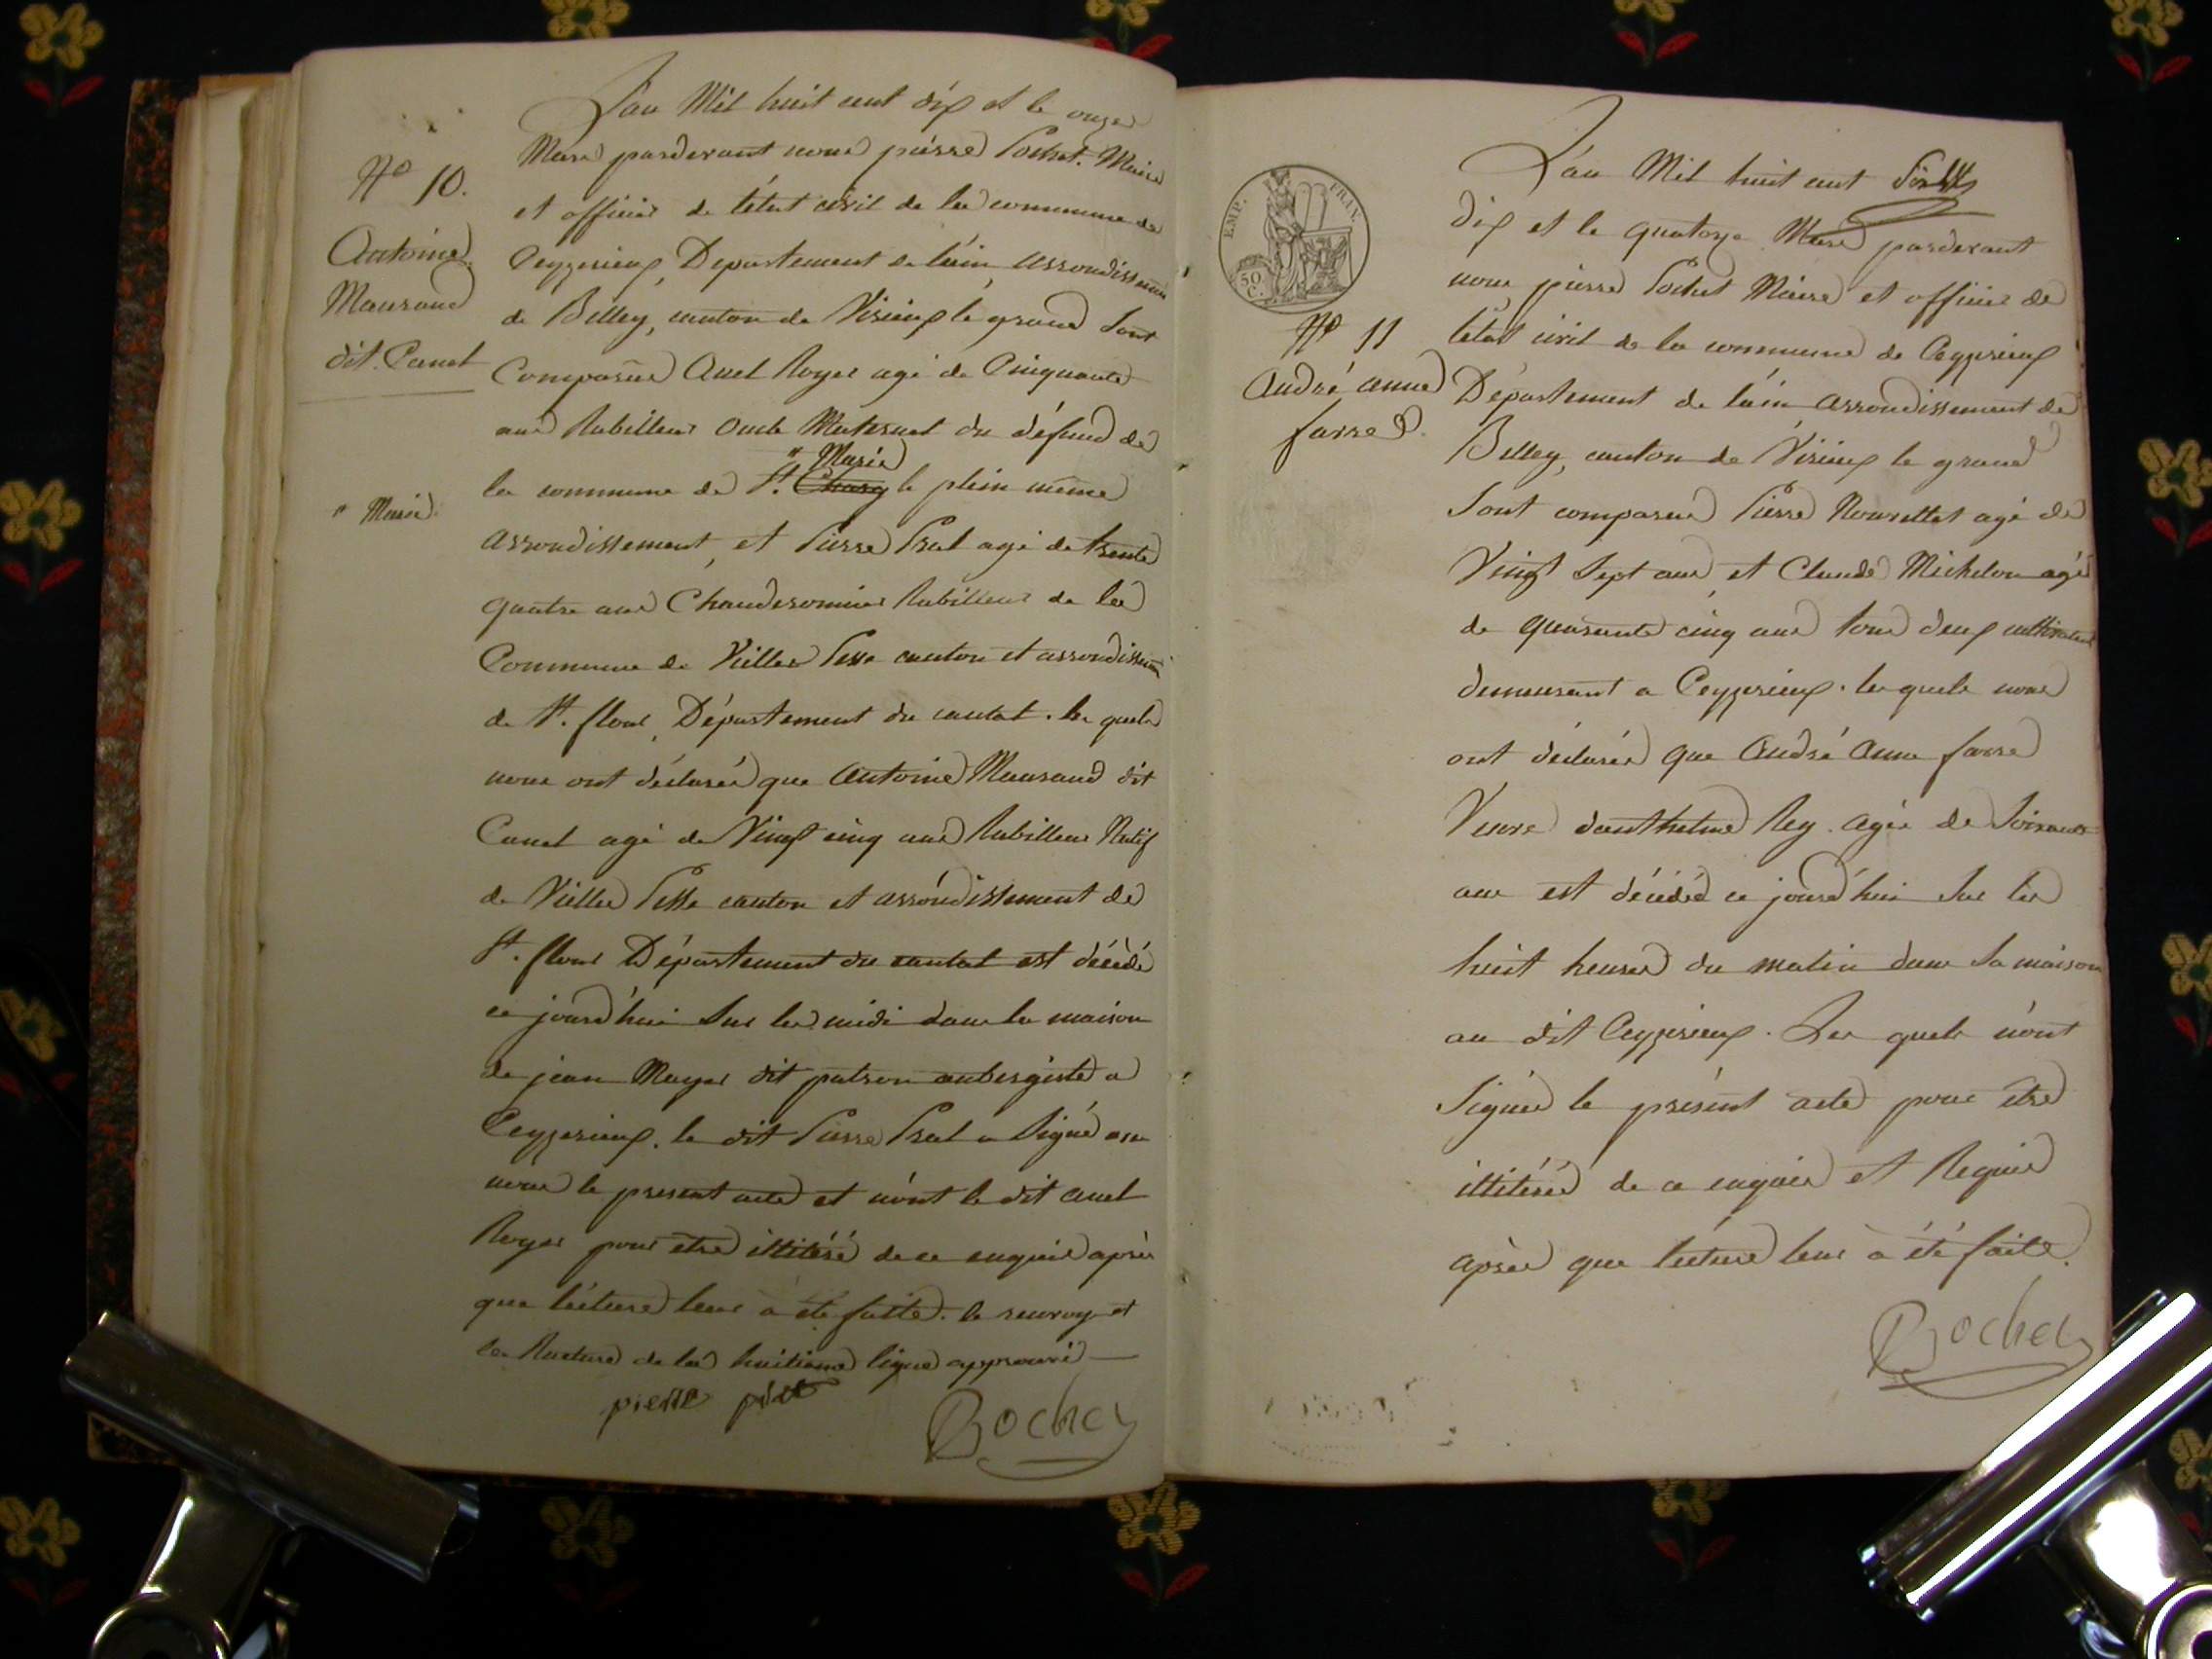 L'an Mil huit cent dix et le onze
Mars pardevant nous pierre Pochet Maire
et officier de l'état civil de la commune de
Ceyzerieux, Departement de l'ain arrondissement
de Belley, canton de Virieux le grand Sont
Comparus Anet Royer agé de Cinquante
ans Rabilleur oncle Maternel du défund de
" Marie
la commune de St. Champ le plein même
arrondissement, et Pierre Prat agé de trente
quatre ans Chauderonnier Rabilleur de la
Commune de Vieller Pesse canton et arrondissement
de St. flour, Département du cantal. les quels
nous ont déclarés que Antoine Mauraud dit
Canet agé de Vingt cinq ans Rabilleur Natif
de Vieller Pesse canton et arrondissement de
St. flour Département du cantal est décédé
ce jourd'hui Sur les midi dans la maison
de jean Mayer dit patron aubergiste a
Ceyzerieux. le dit Pierre Prat a Signé avec
nous le present acte et n'ont le dit Anet
Royer pour etre illitéré de ce enquis après
que lecture leur a été faite. le renvoy et
la Rature de la huitieme ligne approuvé
pierre prat
Bochet
No 10.
Antoine
Mauraud
dit Canet
" Marie
EMP. FRAN.
50 C.
No 11
André anne
farre
L'an Mil huit cent
dix et le quatorze Mars pardevant
nous pierre Pochet Maire et officier de
l'etat civil de la commune de Ceyzerieux
Département de l'ain arrondissement de
Belley, canton de Virieux le grand
Sont comparus Pierre Nourrillet agé de
Vingt Sept ans, et Claude Michelon agé
de quarante cinq ans tous deux cultivateurs
demeurant a Ceyzerieux. les quels nous
ont déclarés que André Anne farre
Veuve d'anthelme Rey agée de Soixante
ans est décédée ce jourd'hui Sur les
huit heures du matin dans Sa maison
au dit Ceyzerieux. Les quels n'ont
Signés le présent acte pour être
illitérés de ce enquis et Requis
après que lecture leur à été faite.
Bochet